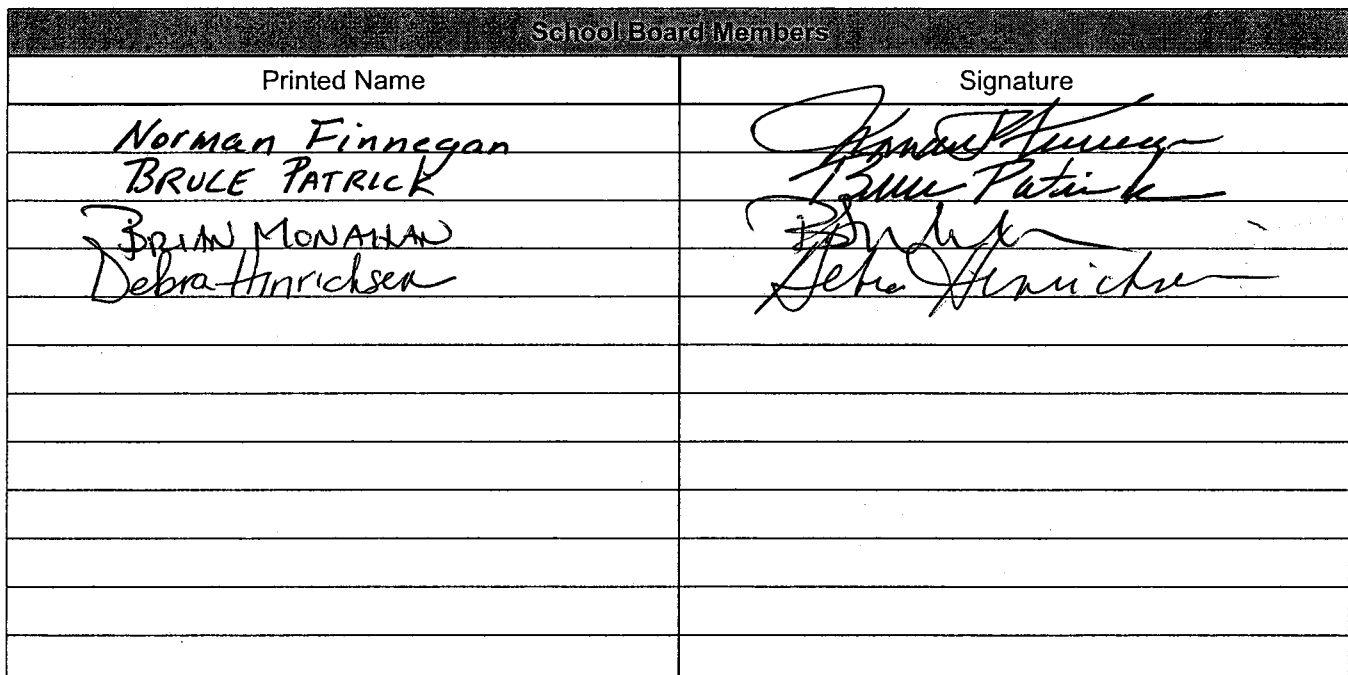 School Board Members
Printed Name Signature
Norman Finnegan Norman P Finnegan
BRUCE PATRICK Bruce Patrick
BRIAN MONAHAN
Debra Hinrichsen Debra Hinrichsen